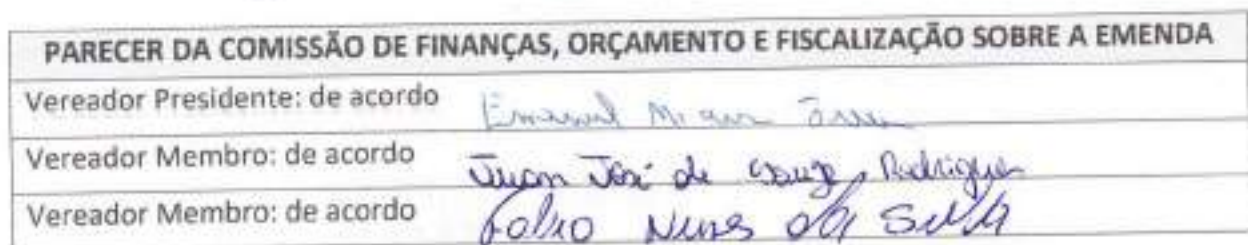 PARECER DA COMISSÃO DE FINANÇAS, ORÇAMENTO E FISCALIZAÇÃO SOBRE A EMENDA
Vereador Presidente: de acordo
Vereador Membro: de acordo Juan José de Rodrigues
Vereador Membro: de acordo Fabio Nunes da Silva